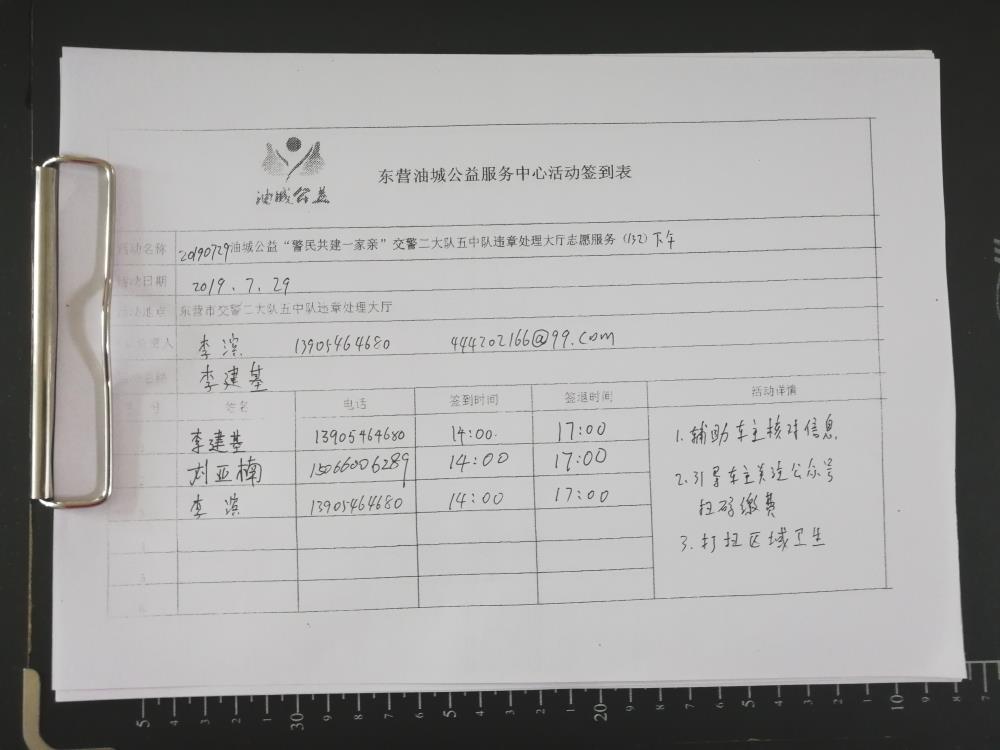 油城公益
东营油城公益服务中心活动签到表
活动名称 20190729油城公益“警民共建一家亲”交警二大队五中队违章处理大厅志愿服务（132）下午
活动日期 2019.7.29
活动地点 东营市交警二大队五中队违章处理大厅
人 李滨 13905464680 444202166@99.com
李建基
号 姓名 电话 签到时间 签退时间 活动详情
李建基 13905464680 14:00 17:00 1.辅助车主核对信息
2 刘亚楠 15066006289 14:00 17:00 2.引导车主关注公众号
3 李滨 13905464680 14:00 17:00 扫码缴费
4 3.打扫区域卫生
5
6
5 4 3 2 1 30 9 8 7 6 5 4 3 2 1 20 9 8 7 6 5 4 3 2 1 10 9 8 7